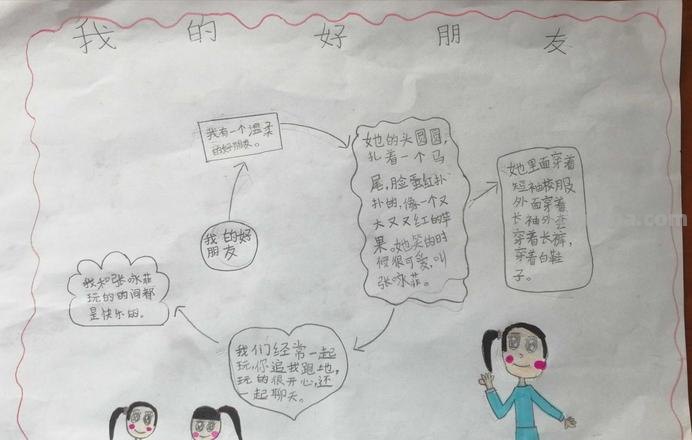 我的好朋友
我有一个温柔
的好朋友。
我的好
朋友
她的头圆圆,
扎着一个马
尾,脸蛋红扑
扑的,像一个又
大又又红的苹
果。她笑的时
候很可爱,叫
张咏菲。
她里面穿着
短袖校服
外面穿着
长袖外套
穿着长裤,
穿着白鞋
子。
我们经常一起
玩,你追我跑地,
玩的很开心,还
一起聊天。
我和张咏菲
玩的时间都
是快乐的。